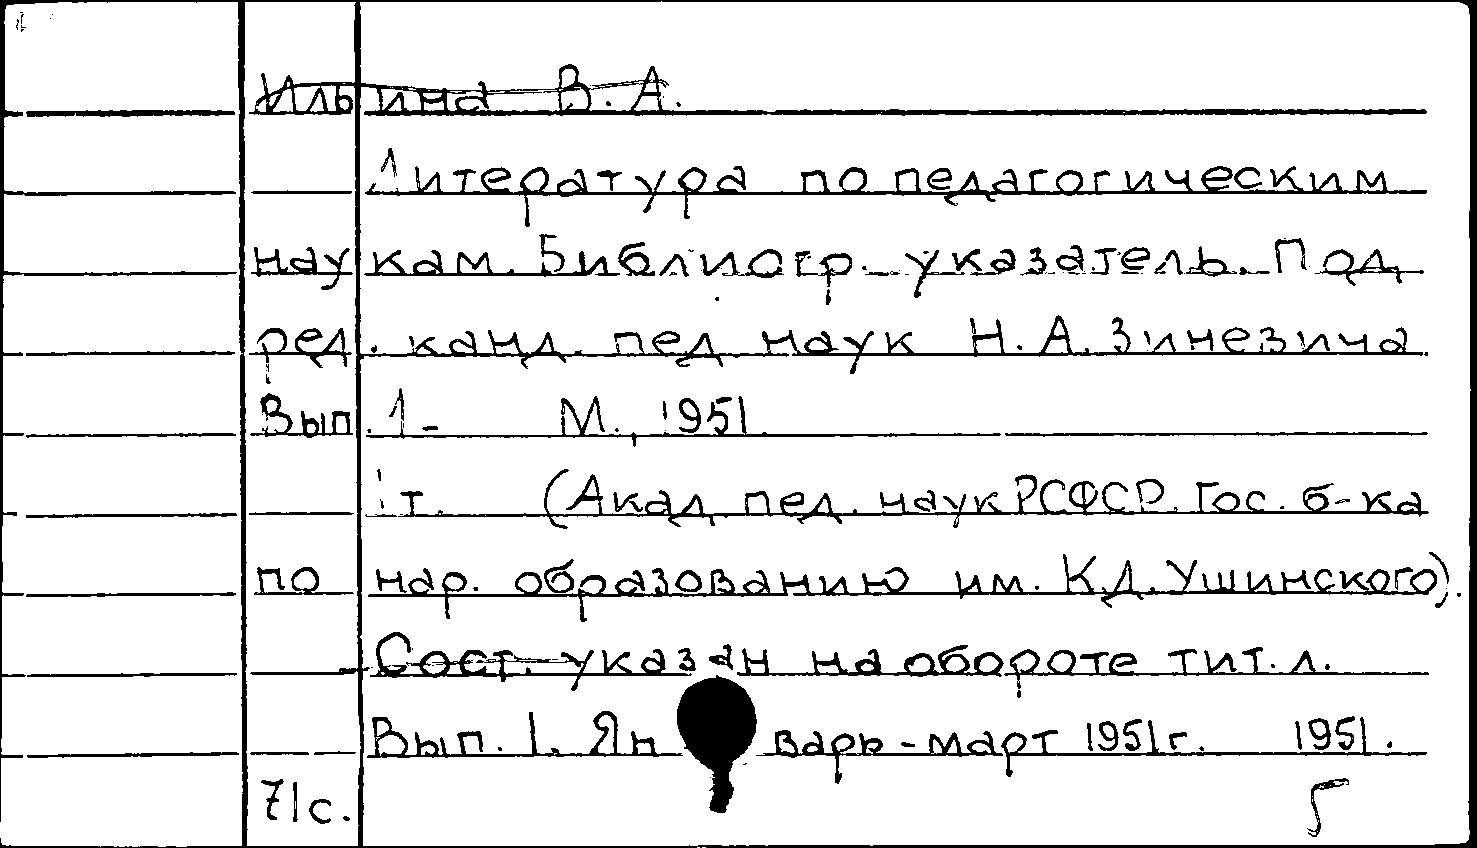 Ильина В. А.
Литература по педагогическим
наукам. Библиогр. указатель. Под
ред. канд. пед наук Н. А. Зиневича
Вып. 1- М., 1951.
1 т. (Акад. пед. наук РСФСР. Гос. б-ка
по нар. образованию им. К.Д. Ушинского).
Сост. указан на обороте тит. л.
Вып. 1. Январь-март 1951 г. 1951.
71 с.